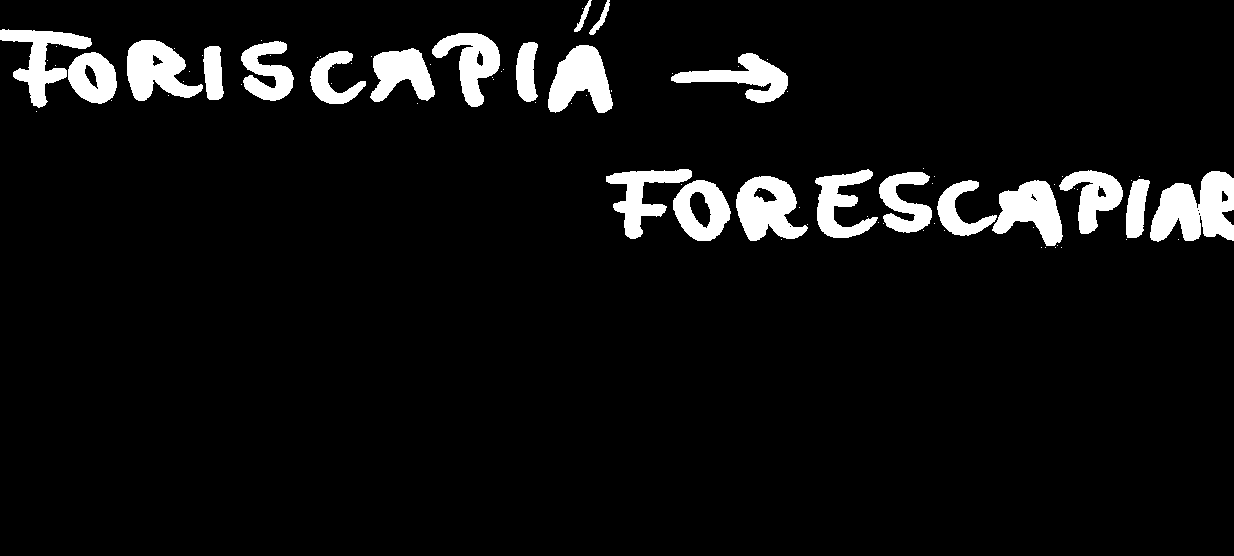 FORISCAPIA̋ →
FORESCAPIAR